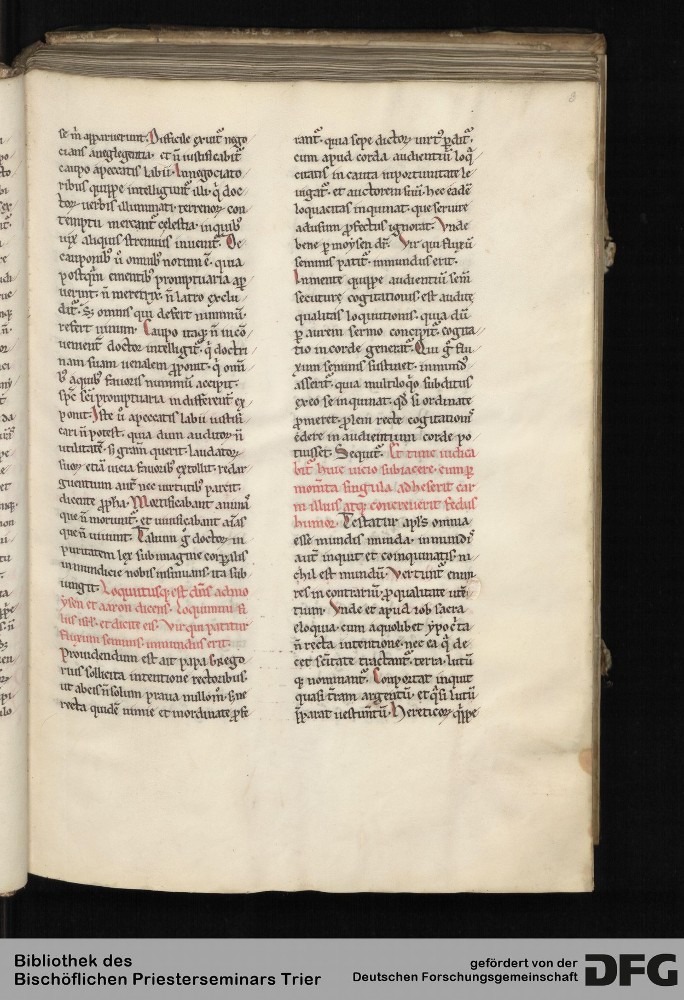 se m̄ apparuerunt. Difficile exuit᷑ nego
cians a neglegentia. et n̄ iustificabit᷑
caupo a peccatis labii. In negociato
ribus quippe intelligunt᷑ illi. q̇ doc
toꝝ uerbis illuminati. terrenoꝝ con
temptu mercant᷑ celestia. in quibꝰ
uix aliquis strenuus inuenit᷑. De
cauponibꝰ ů omnibꝰ notum ē. quia
postq̄m ementibꝰ promptuaria ap
uerint. n̄ meretrix. n̄ latro exclu
dit᷑. S; omnis qui defert nūmum.
refert uinum. Caupo itaq; n̄ incō
uenient᷑ doctor intelligit᷑. q̇ doctri
nam suam uenalem ꝓponit. q̇ omī
bꝰ a quibꝰ fauoris nummū accipit.
sp̄c sc̄i promptuaria indifferent᷑ ex
ponit. Iste ů a peccatis labii iustifi
cari n̄ potest. quia dum auditoꝝ n̄
utilitatē. s; gr̄am querit. laudatoꝝ
suoꝝ etiā uicia fauoribꝰ extollit. redar
guentium aut̄ nec uirtutibꝰ parcit.
dicente ꝓpha. Mortificabant animā
que n̄ moriunt᷑. et uiuificabant aīas
que n̄ uiuunt. Talium ġ doctoꝝ in
puritatem lex sub imagine corpalis
inmundicie nobis insinuans. ita sub
iungit. Loquutusq; est dn̄s ad mo
ysen et aaron dicens. Loquimini fi
liis isrl. et dicite eis. Vir qui patitur
fluxum seminis. inmundus erit.
Prouidendum est ait papa Grego
rius sollicita intentione rectoribus.
ut ab eis n̄ solum praua nullom̊. s; ne
recta quidē nimie et inordinate ꝓfe
rant᷑. quia sepe dictoꝝ uirtꝰ ꝑdit᷑.
cum apud corda audientiū loq̊
citatis incauta inportunitate le
uigat᷑. et auctorem suū. hec eadē
loquacitas inquinat. que seruire
ad usum ꝓfectus ignorat. Vnde
bene p̄ moysen dr̄. Vir qui fluxū
seminis patit᷑. inmundus erit.
In mente quippe audientiū sem̄
secuturę cogitationis. est auditę
qualitas loquutionis. quia dū
ꝑ aurem sermo concipit᷑. cogita
tio in corde generat᷑. Qui ġ flu
xum seminis sustinet. inmundꝰ
asserit᷑. quia multiloq̊o subditus
ex eo se inquinat. qd̄ si ordinate
ꝓmeret. ꝓlem rectę cogitationis
edere in audientium corde po
tuisset. Sequit᷑. Et tunc iudica
bit᷑ huic uicio subiacere. cumq;
mom̄ta singula adheserit car
ni illius. atq; concreuerit fedus
humor. Testatur apl̄s omnia
esse mundis munda. inmundis
aut̄ inquit et coinquinatis ni
chil est mundū. Vertunt᷑ enim
res in contrariū. ꝓ qualitate utē
tium. Vnde et apud iob sacra
eloquia. cum a quolibet ypoc̄ta
n̄ recta intentione. nec ea q̇ de
cet sc̄itate tractant᷑. terra. lutū
q; nominant᷑. Conportat inquit
quasi t̄ram argentū. et q̊si lutū
p̄parat uestim̄tū. Hereticoꝝ q̊ppe
Bibliothek des
Bischöflichen Priesterseminars Trier
gefördert von der
Deutschen Forschungsgemeinschaft
DFG